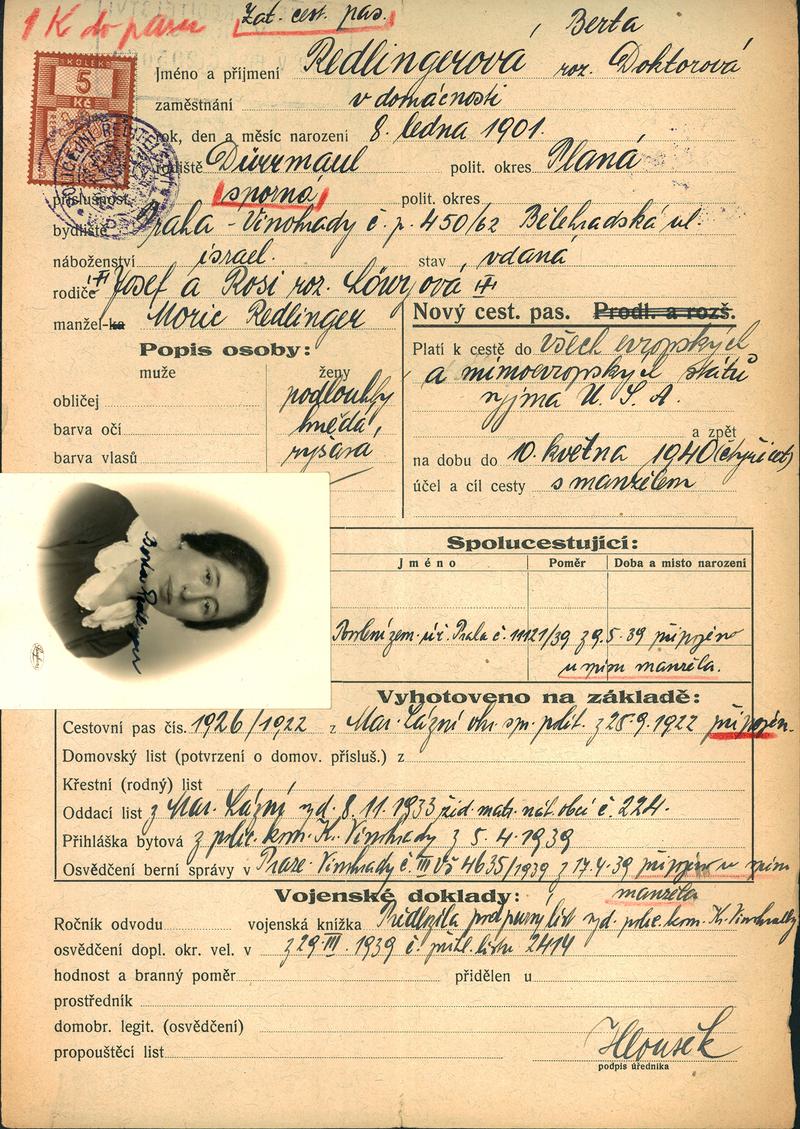 1 K do pasu Zat. cest. pas.
Berta
Jméno a příjmení Redlingerová roz. Doktorová
KOLEK
5
Kč
zaměstnání v domácnosti
rok, den a měsíc narození 8. ledna 1901.
POLICEJNÍ ŘEDITEL
Dürrmaul polit. okres Planá
příslušnost sporná polit. okres
bydliště Praha - Vinohrady č. p. 450/62 Bělehradská ul.
náboženství israel. stav vdaná
rodiče Josef a Rosi roz. Löwyová
manžel-ka Moric Redlinger
Nový cest. pas. Prodl. a rozš.
Popis osoby:
Platí k cestě do všech evropských
muže ženy
a mimoevropských států
obličej podlouhlý
vyjma U. S. A.
barva očí hnědá,
a zpět
barva vlasů ryšavá
na dobu do 10. května 1940 (čtyři let)
účel a cíl cesty s manželem
Berta Redlinger
Spolucestující:
Jméno Poměr Doba a místo narození
Povolení zem. úř. Praha č. 11121/39 z 9. 5. 39 připojeno
u spisu manžela.
Vyhotoveno na základě:
Cestovní pas čís. 1926/1922 z Mar. Lázní okr. sp. polit. z 25. 9. 1922 připojen.
Domovský list (potvrzení o domov. přísluš.) z
Křestní (rodný) list
Oddací list z Mar. Lázní vyd. 8. 11. 1933 žid. matr. náb. obcí č. 224.
Přihláška bytová z polic. kom. K. Vinohrady z 5. 4. 1939
Osvědčení berní správy v Praze-Vinohrady č. III Vš 4635/1939 z 17. 4. 39 připojeno u spisu
manžela
Vojenské doklady:
Ročník odvodu vojenská knížka Předložila podpurný list vyd. polic. kom. K. Vinohrady
osvědčení dopl. okr. vel. v z 29. III. 1939 č. přihl. listu 2414
hodnost a branný poměr přidělen u
prostředník
domobr. legit. (osvědčení)
propouštěcí list Hlousek
podpis úředníka